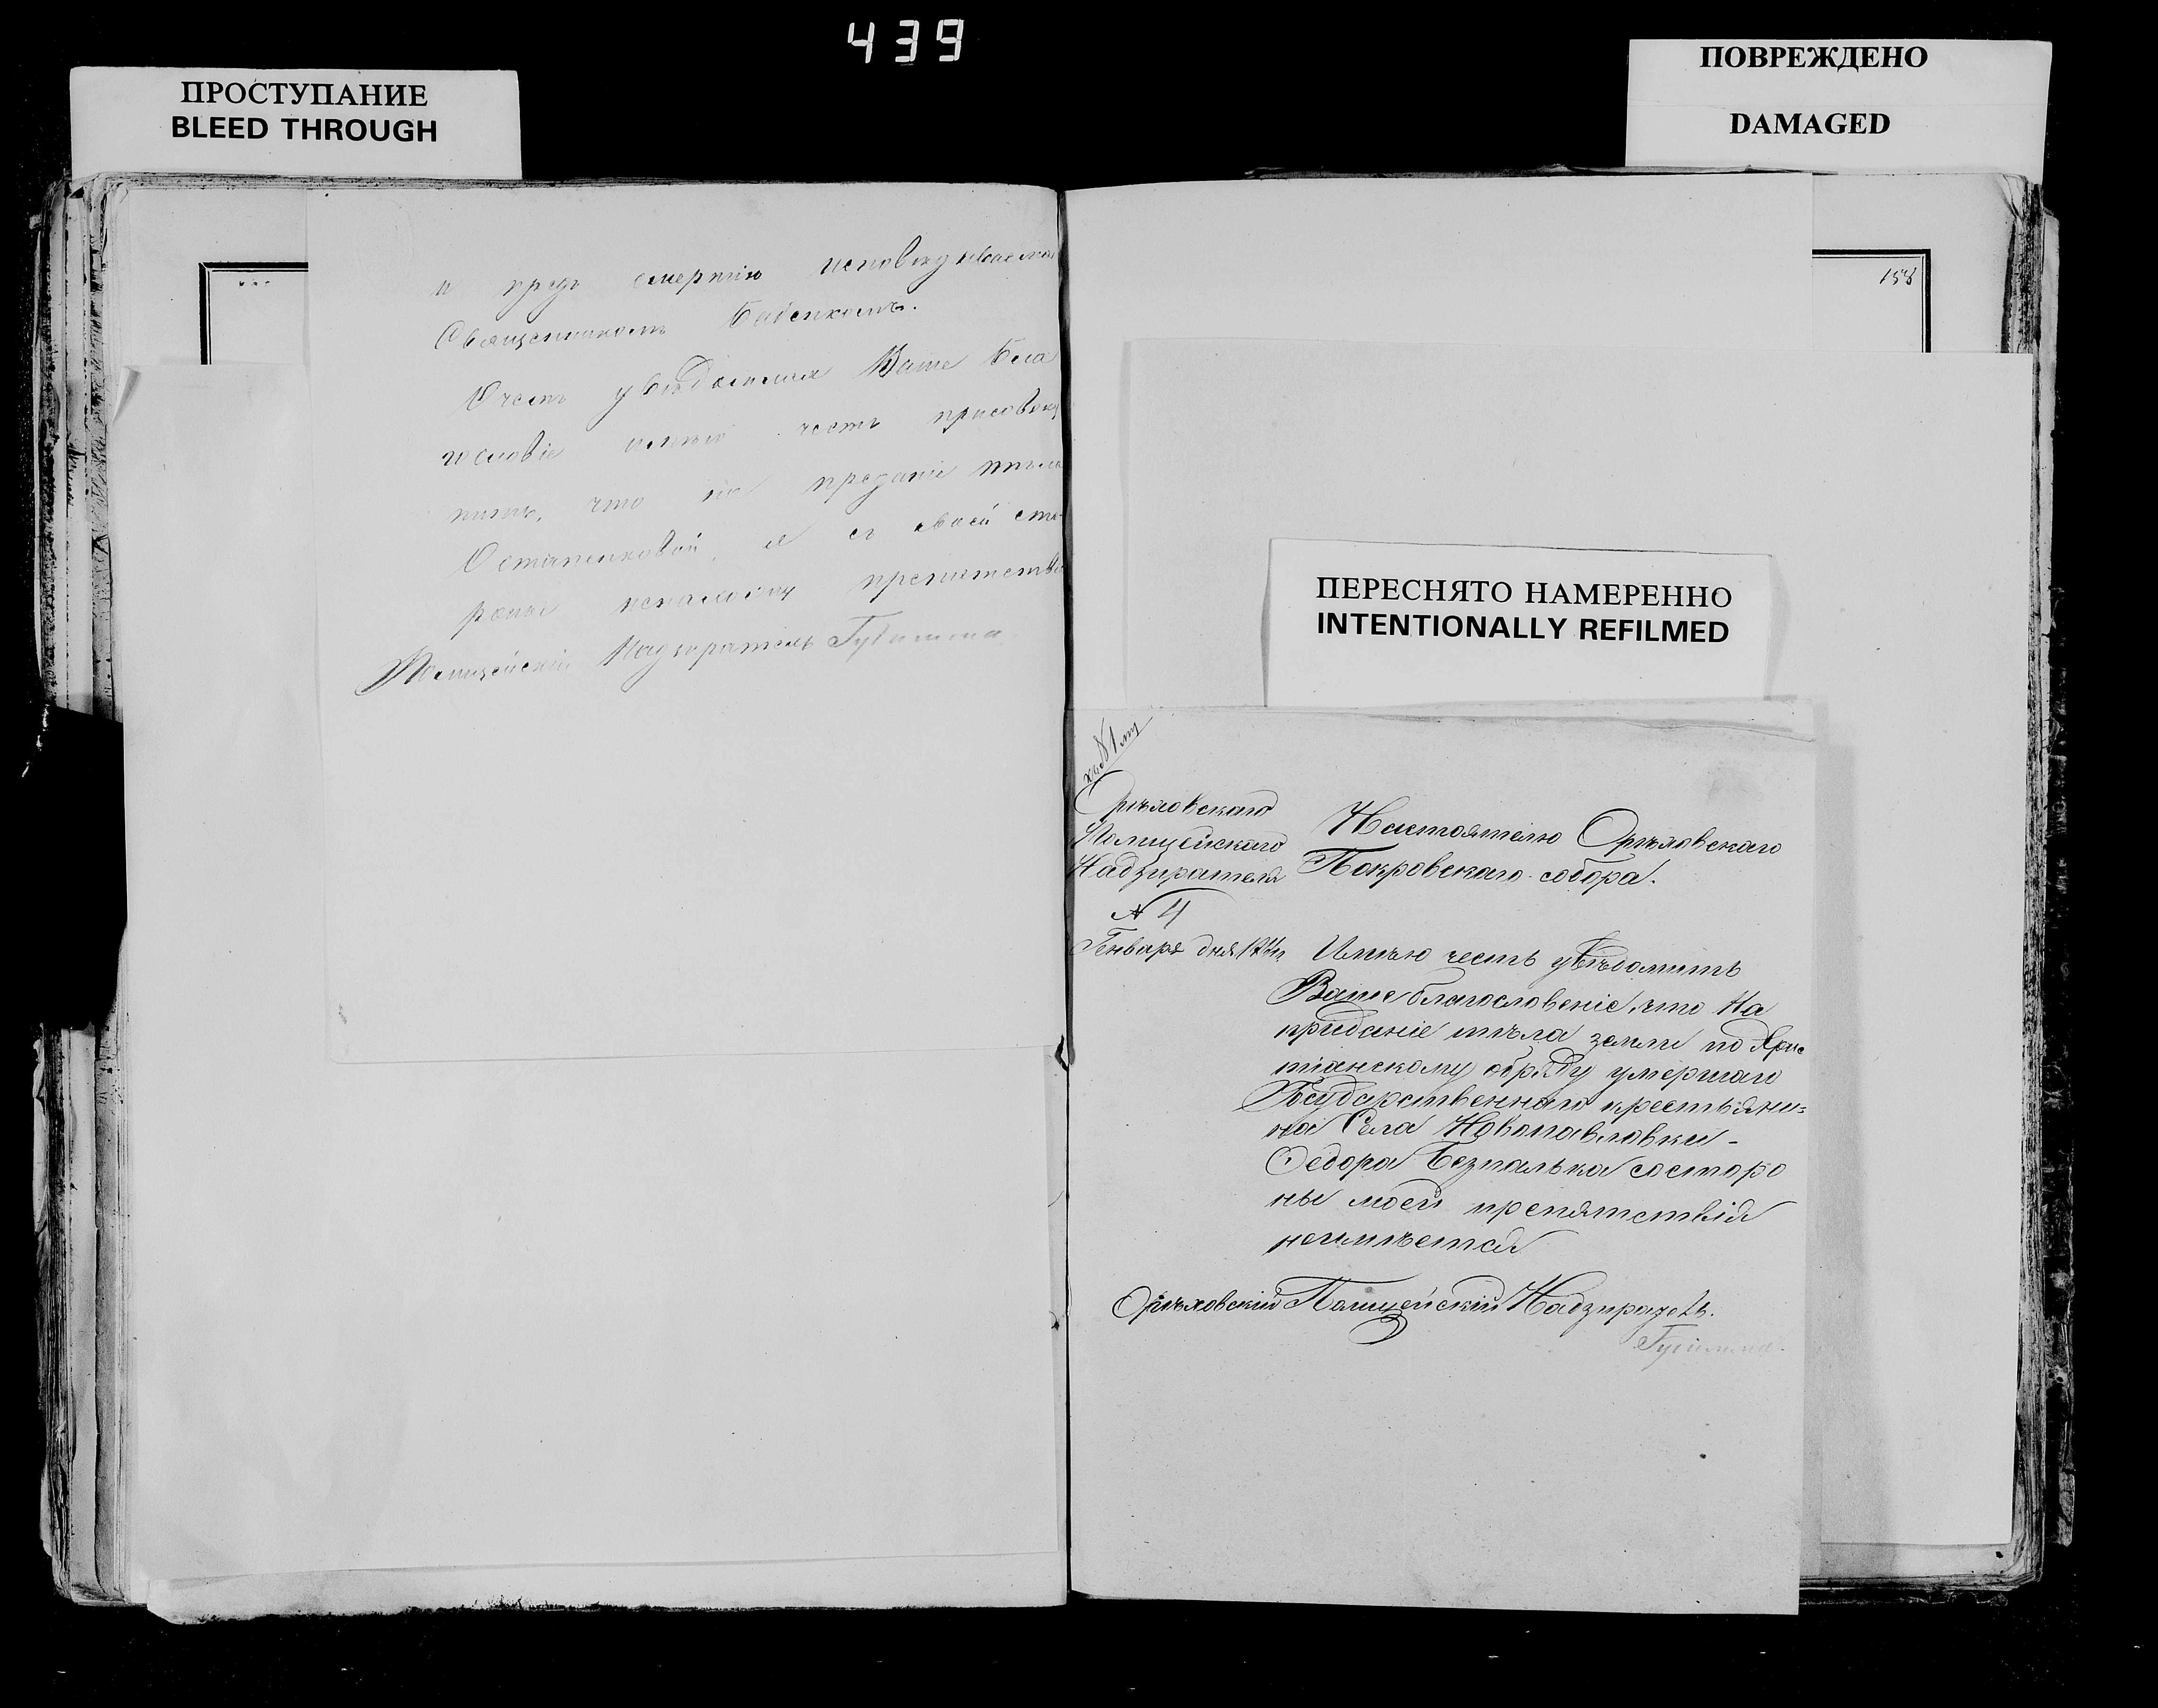 439
ПРОСТУПАНИЕ
BLEED THROUGH
ПОВРЕЖДЕНО
DAMAGED
и предъ смертію исповедуваема
Священникомъ
О чемъ уведомляя Ваше Бла
гословіе имею честь присовоку
пить, что на преданіе тела
Остапенковой, я съ своей сто-
роны непалагаю препятстви
Полицейскій Надзиратель
158
ПЕРЕСНЯТО НАМЕРЕННО
INTENTIONALLY REFILMED
Орѣховскаго
Полицейскаго
Надзирателя
№ 4
Генваря дня
Настоятелю Орѣховскаго
Покровскаго собора.
Имѣю честь увѣдомить
Ваше благословеніе, что на
придание тѣла земли по Хрис
тіанскому обряду умершаго
Государственнаго крестьяни=
на Села Новопавловки -
Федора Безпалька состоро
ны моей препятствія
неимѣется
Орѣховскій Полицейскій Надзиратель.